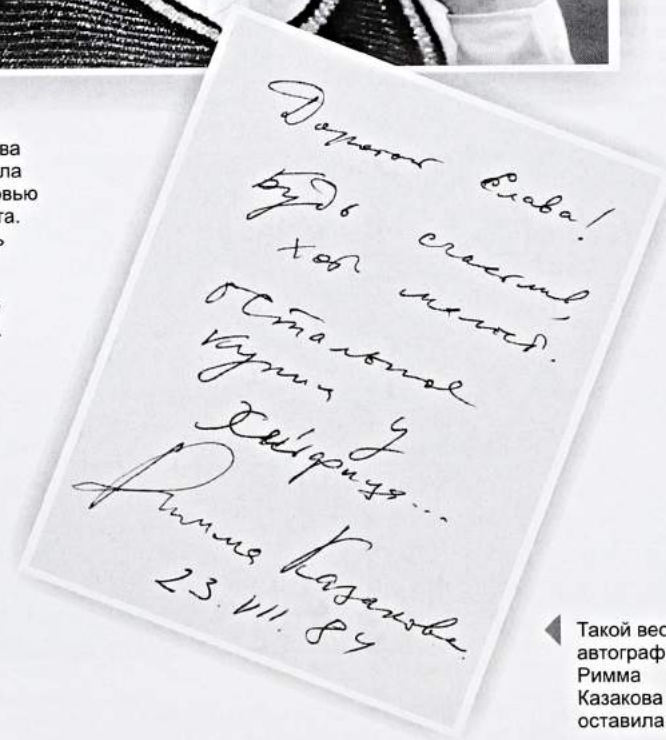 ва
ла
овью
та.
Дорогой Слава!
Будь счастлив,
хоть малость.
Остальное
у
Римма Казакова.
23. VII. 84
Такой вес
автограф
Римма
Казакова
оставила